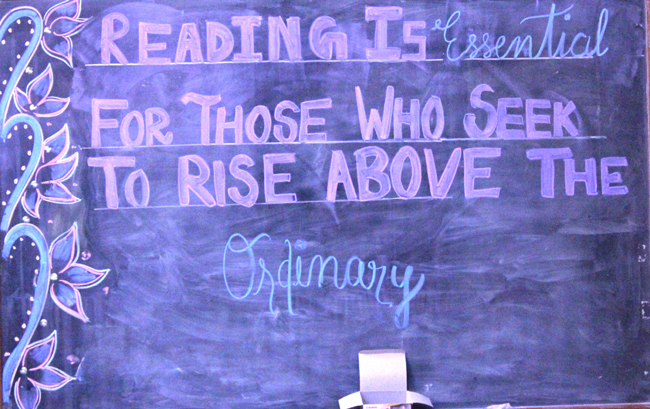 READING IS Essential
FOR THOSE WHO SEEK
TO RISE ABOVE THE
Ordinary